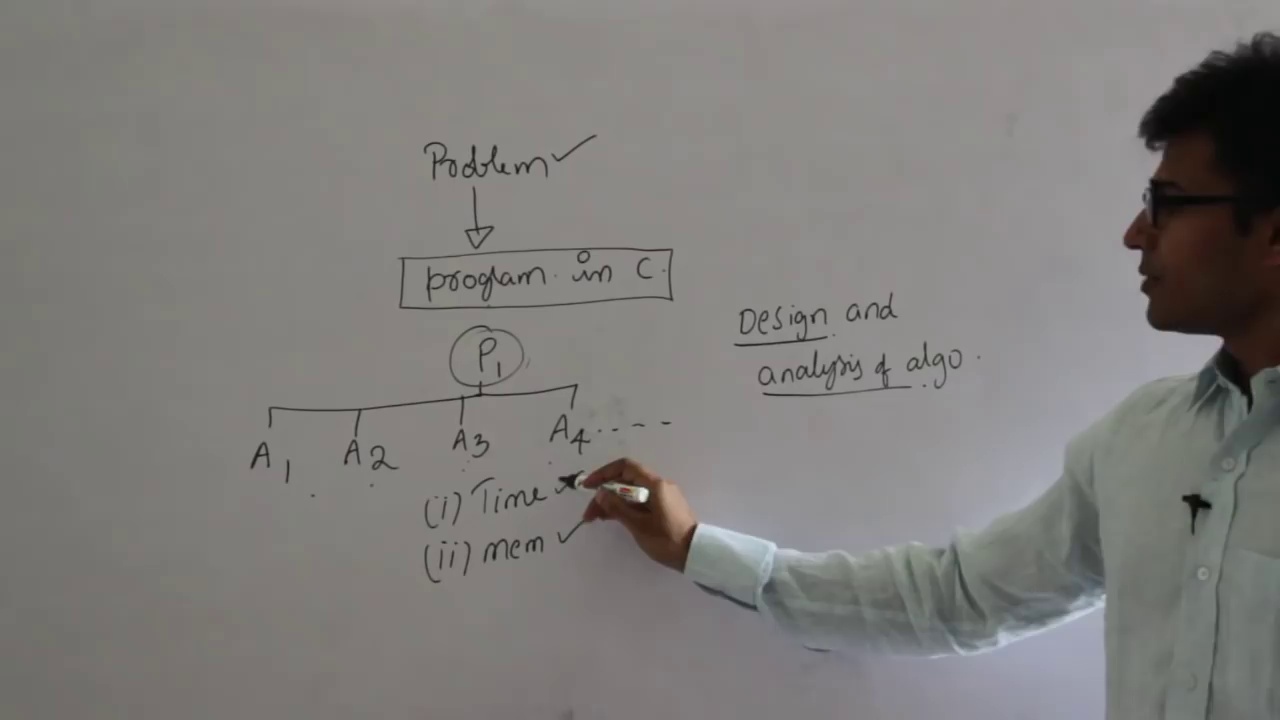 Problem ✓
program in C.
P1
A1 A2 A3 A4 ....
(i) Time ✓
(ii) mem ✓
Design and
analysis of algo.